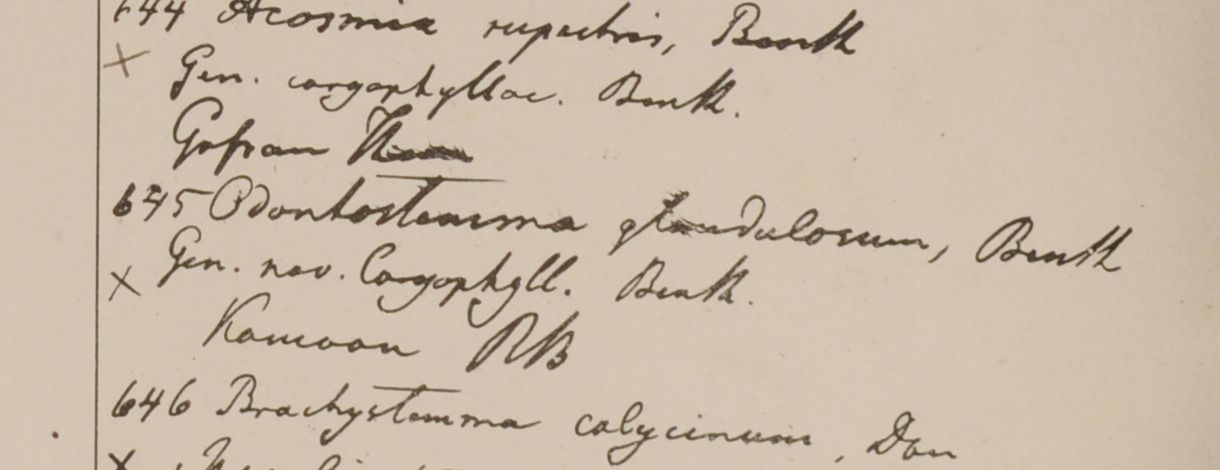 644 Acosmia rupestris, Benth
× Gen. caryophyllac. Benth.
Gossan
645 Odontostemma glandulosum, Benth
Gen. nov. Caryophyll. Benth.
×
Kamoon RB
646 Brachystemma calycinum, Don
×